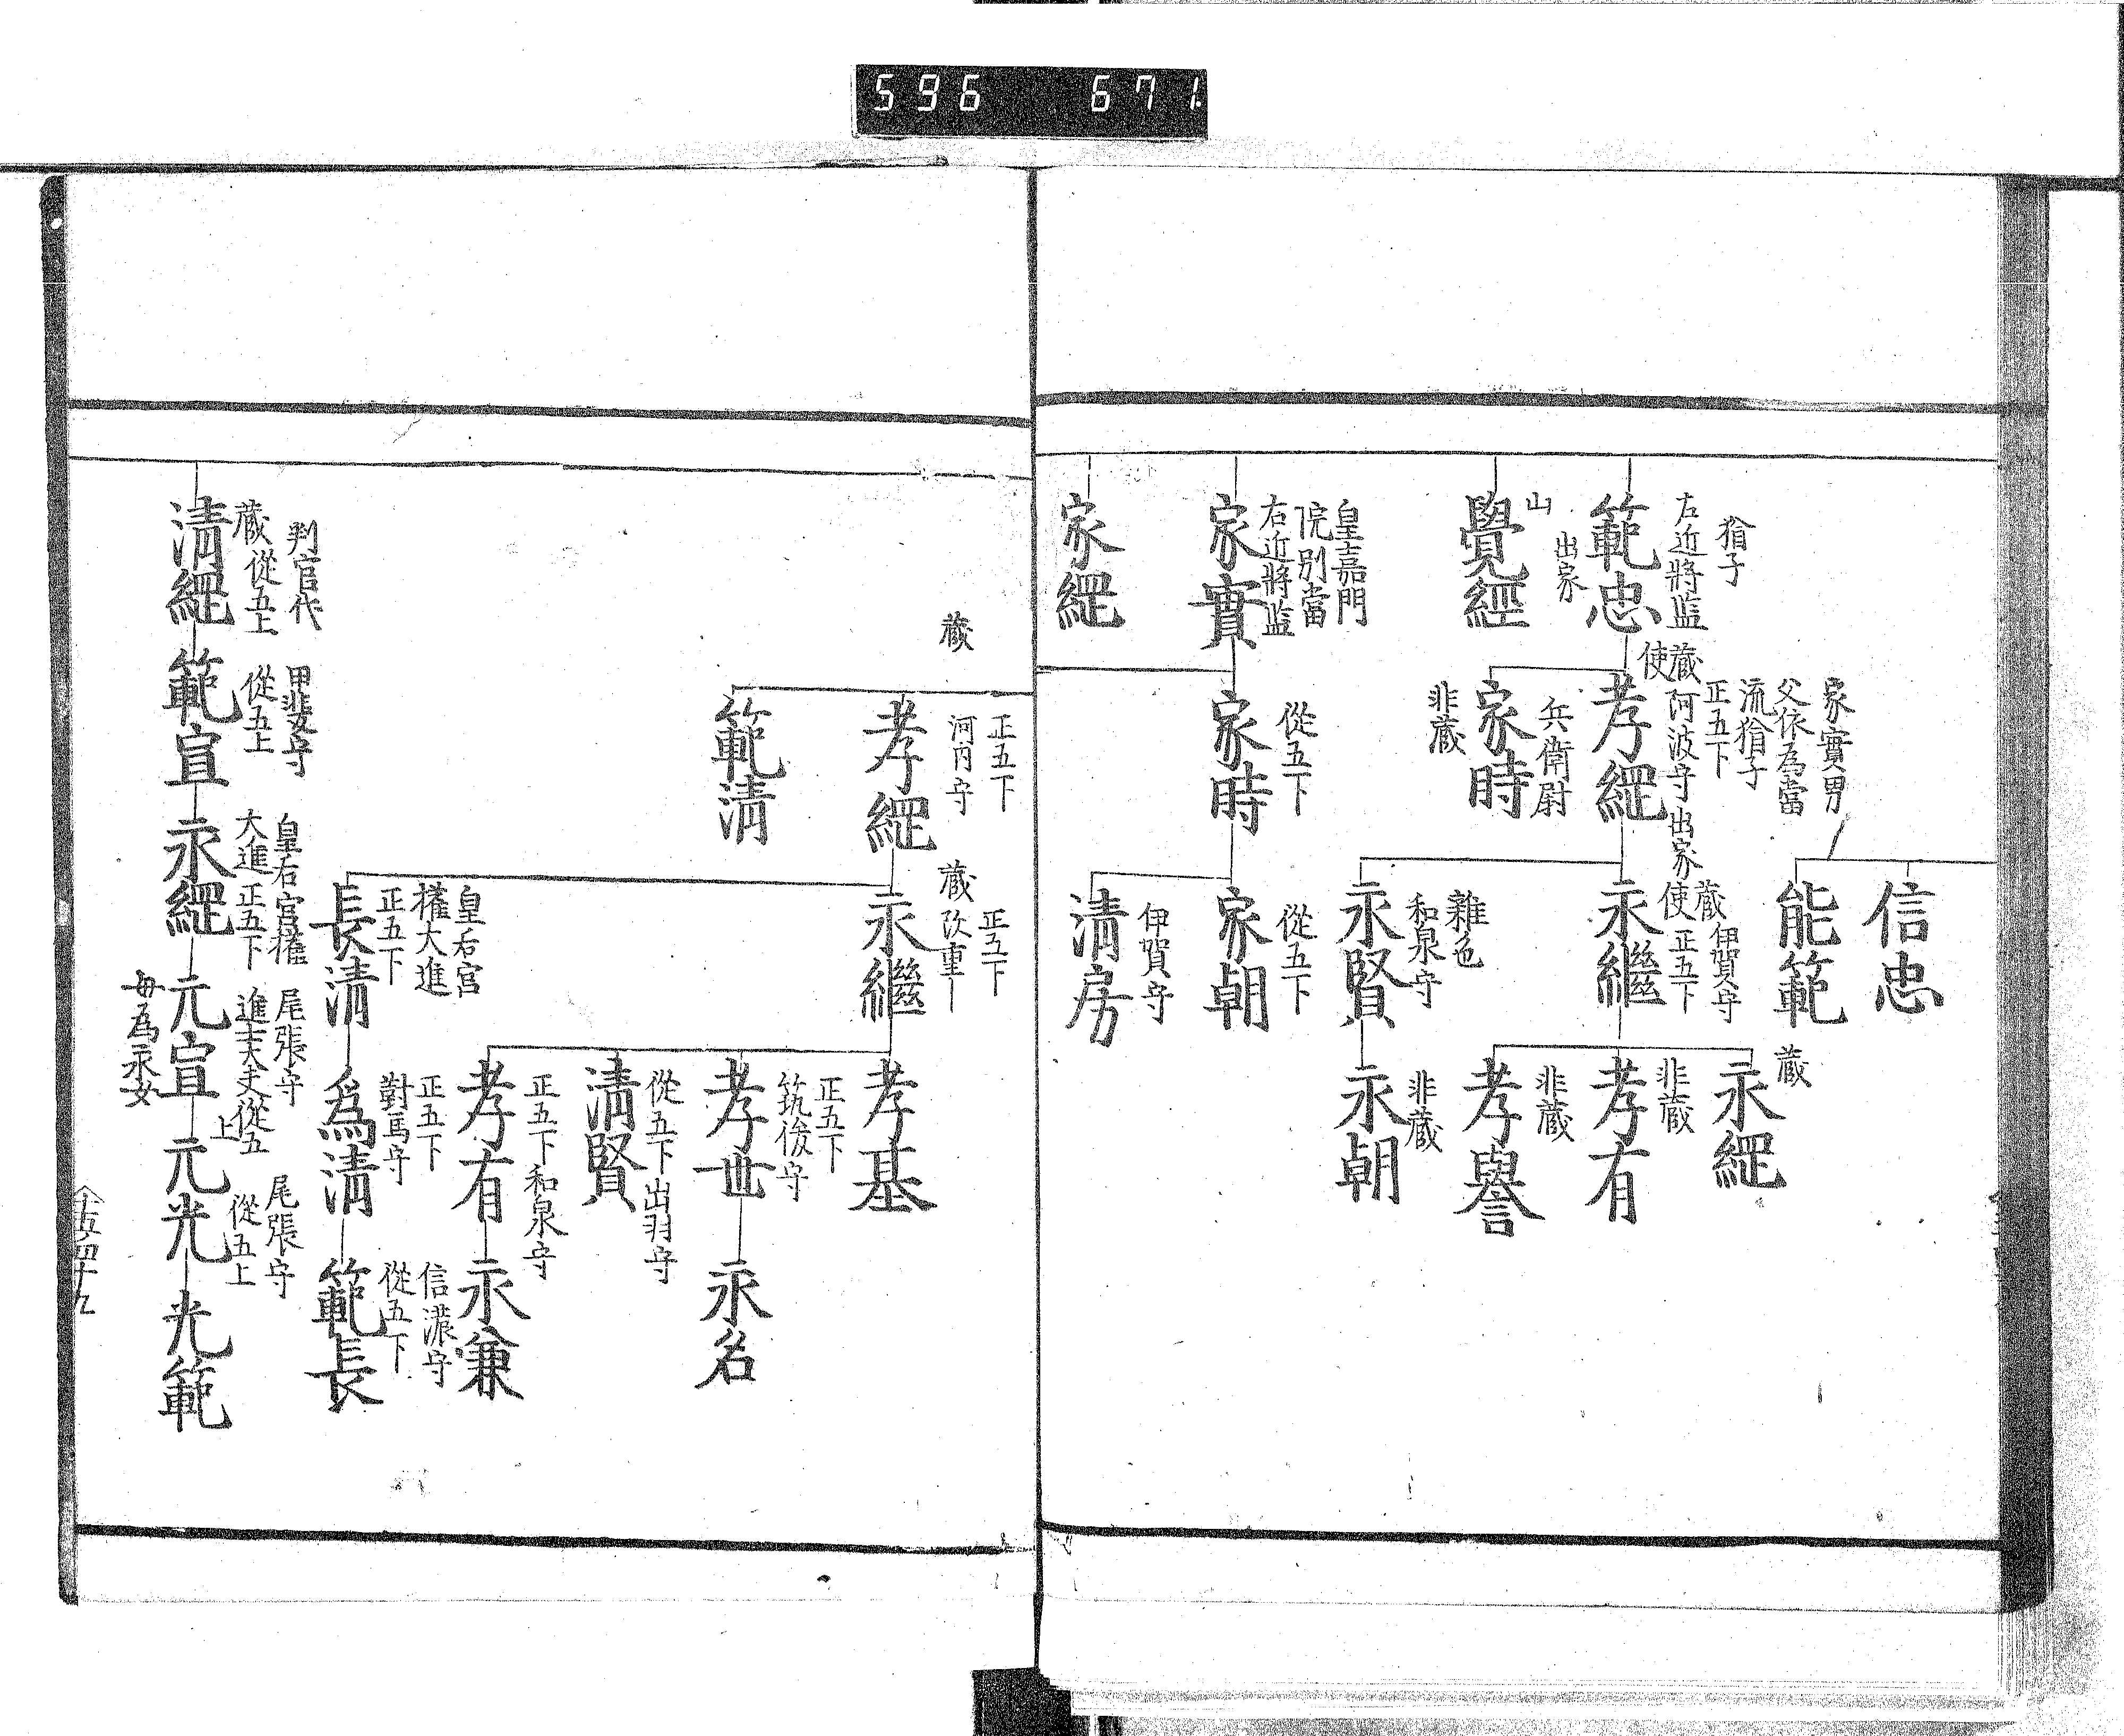 596 671
信忠
能範
猶子
左近將監
範忠
家實男
父依為當
流猶子
正五下
阿波守 出家
藏
使
孝經
伊賀守
藏
使 正五下
永繼
藏
永經
非蔵
孝有
非蔵
孝譽
兵衛尉
家時
非蔵
雜色
和泉守
永賢
非蔵
永朝
山
出家
覺經
皇嘉門
院別當
右近將監
家實
從五下
家時
從五下
家朝
伊賀守
清房
家經
藏
正五下
河内守
孝經
範清
正五下
藏 改重一
永繼
孝基
正五下
筑後守
孝世
永名
從五下 出羽守
清賢
正五下 和泉守
孝有
永兼
皇后宮
權大進
正五下
長清
正五下
對馬守
為清
信濃守
從五下
範長
判官代
藏 從五上
清經
甲斐守
從五上
範宣
皇后宮權
大進 正五下
永經
尾張守
進士大夫從五
上
元宣
母為永女
尾張守
從五上
元光
光範